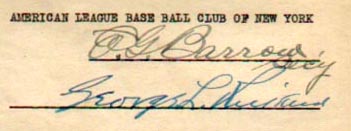 AMERICAN LEAGUE BASE BALL CLUB OF NEW YORK
E.G. Barrow
Sec'y
George L.